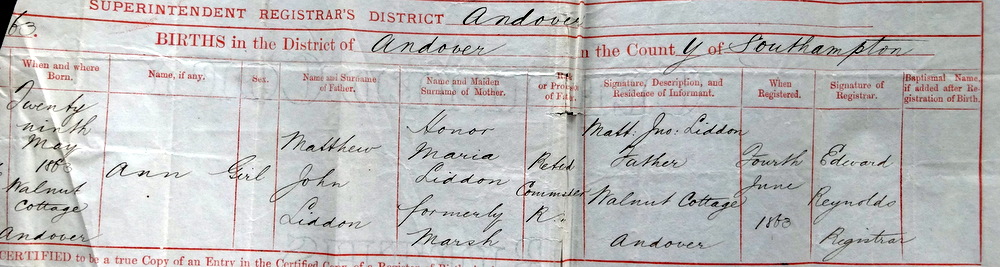 SUPERINTENDENT REGISTRAR'S DISTRICT Andover
63.
BIRTHS in the District of Andover in the County of Southampton
When and where Born.
Name, if any.
Sex.
Name and Surname of Father.
Name and Maiden Surname of Mother.
or Profes
of Father.
Signature, Description, and Residence of Informant.
When Registered.
Signature of Registrar.
Baptismal Name, if added after Registration of Birth.
Twenty
ninth
May
1883
Walnut
Cottage
Andover
Ann
Girl
Matthew
John
Liddon
Honor
Maria
Liddon
formerly
Marsh
Reted
Commder
R
Matt: Jno: Liddon
Father
Walnut Cottage
Andover
Fourth
June
1883
Edward
Reynolds
Registrar
CERTIFIED to be a true Copy of an Entry in the Certified Copy of a Register of